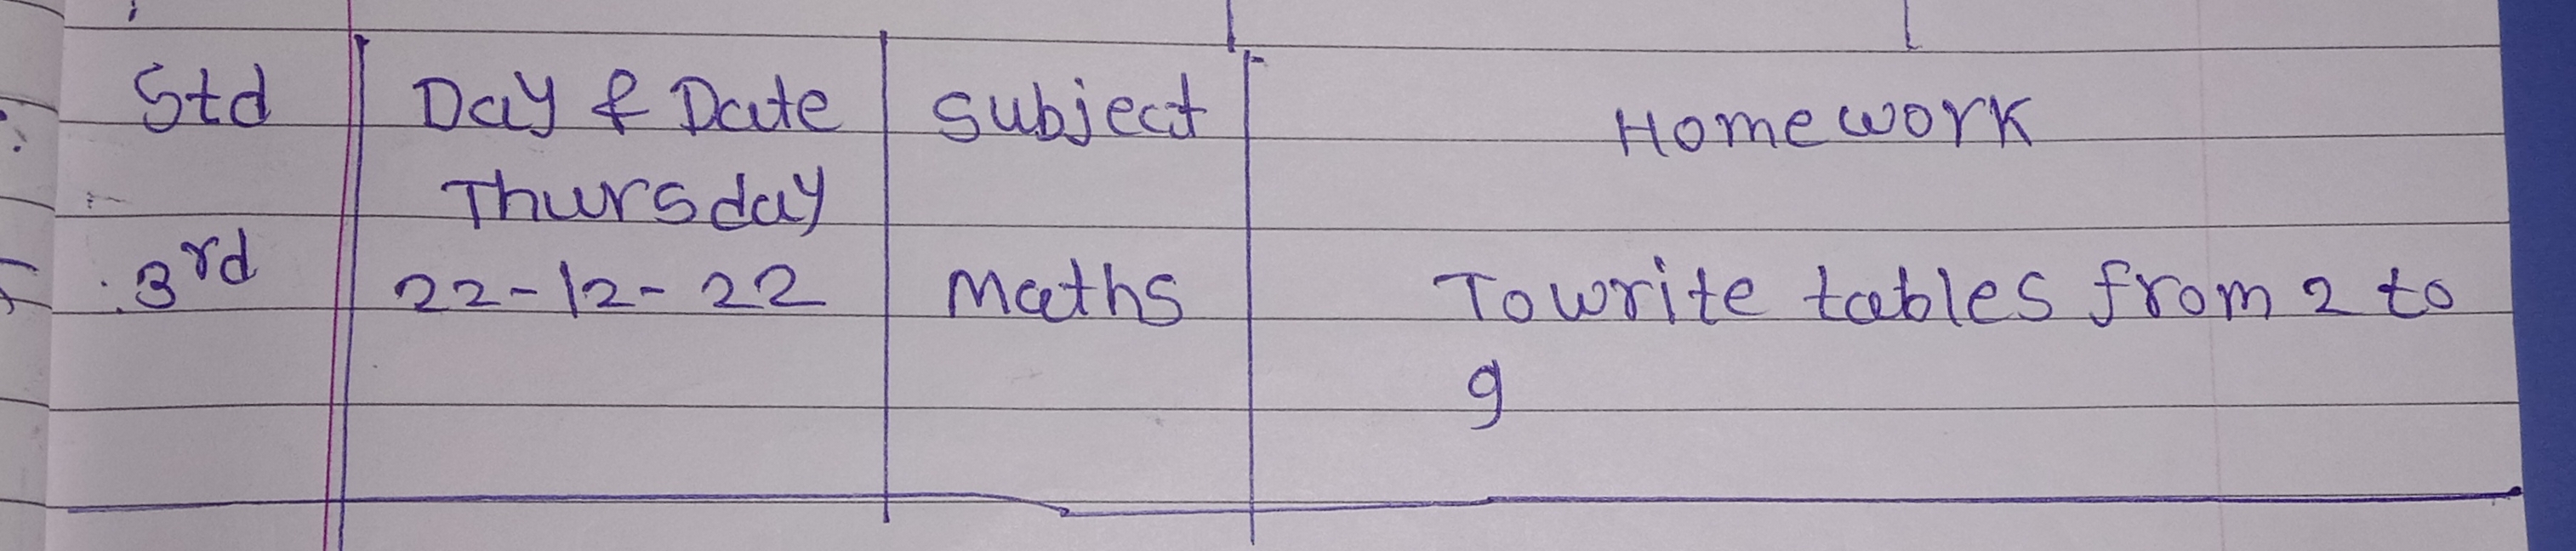 Std Day & Date Subject Homework
Thursday
3rd 22-12-22 Maths To write tables from 2 to
9